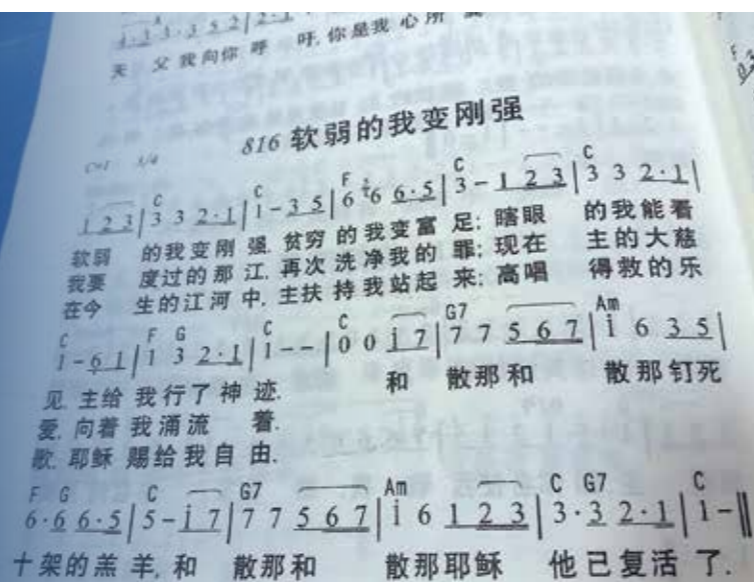 4·3 3·3 5 2 | 2·1
天 父 我向你 呼 吁, 你是我 心 所
816 软弱的我变刚强
C=1 3/4
C C F C C
1 2 3 | 3 3 2·1 | 1 - 3 5 | 6 6 6·5 | 3 - 1 2 3 | 3 3 2·1 |
软弱 的我变刚强, 贫穷的我变富 足; 瞎眼 的我能看
我要 度过的那江, 再次洗净我的 罪; 现在 主的大慈
在今 生的江河中, 主扶持我站起 来; 高唱 得救的乐
C F G C C G7 Am
1 - 6 1 | 1 3 2·1 | 1 - - | 0 0 i 7 | 7 7 5 6 7 | i 6 3 5 |
见, 主给我行了神迹. 和 散那和 散那钉死
爱, 向着我涌流 着.
歌, 耶稣赐给我自由.
F G C G7 Am C G7 C
6·6 6·5 | 5 - i 7 | 7 7 5 6 7 | i 6 1 2 3 | 3·3 2·1 | 1 - ‖
十架的羔羊, 和 散那和 散那耶稣 他已复活了.